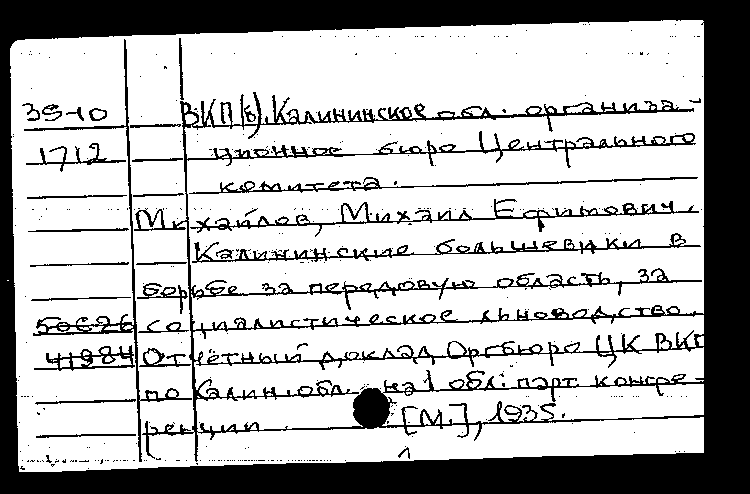 35-10 ВКП(б). Калининское обл. организа-
1712 ционное бюро Центрального
комитета.
Михайлов, Михаил Ефимович.
Калининские большевики в
борьбе за передовую область, за
50626 социалистическое льноводство.
41984 Отчётный доклад Оргбюро ЦК ВКП
по Калин. обл. на 1 обл. парт конфе-
ренции. [М.], 1935.
1